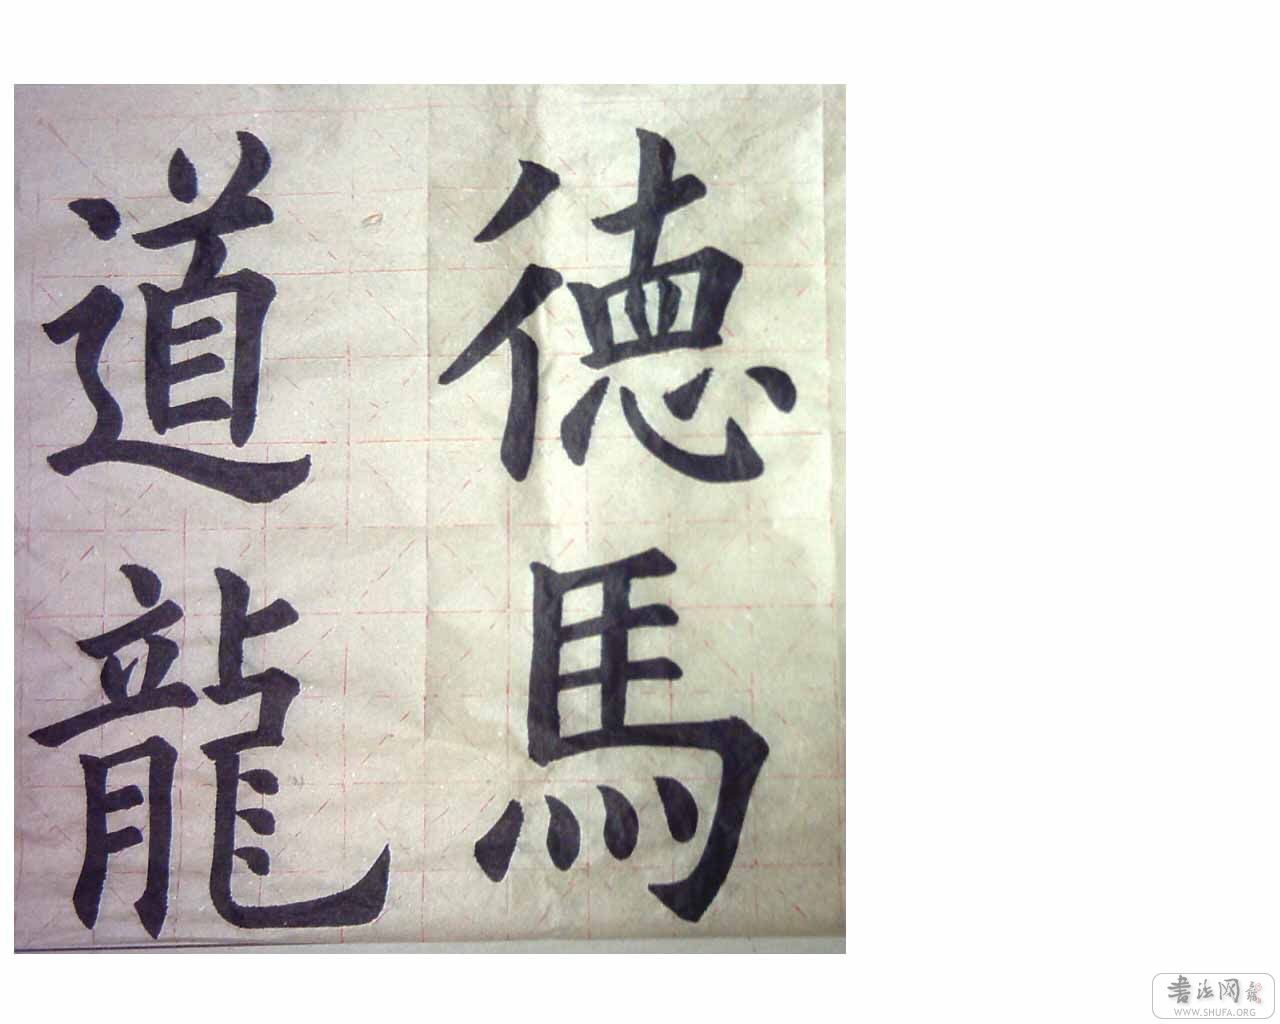 道徳
龍馬
書法网
WWW.SHUFA.ORG